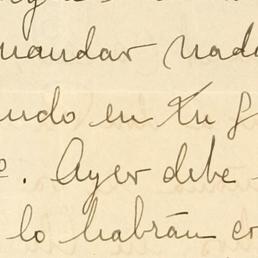 mandar nada
ndo en tu g
o. Ayer debe
lo habrán en